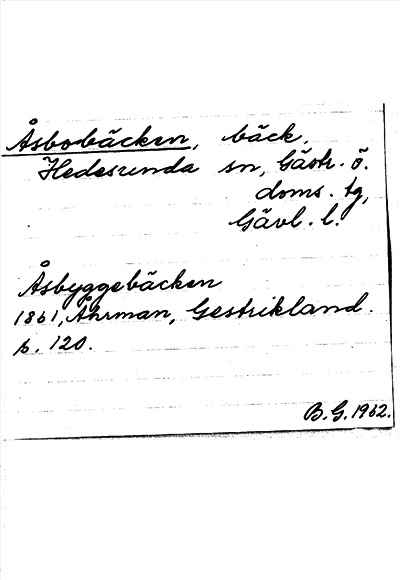 Åsbobäcken, bäck,
Hedesunda sn, Gästr. ö.
doms. tg,
Gävl. l.
Åsbyggebäcken
1861, Åhrman, Gestrikland.
s. 120.
B. G. 1962.